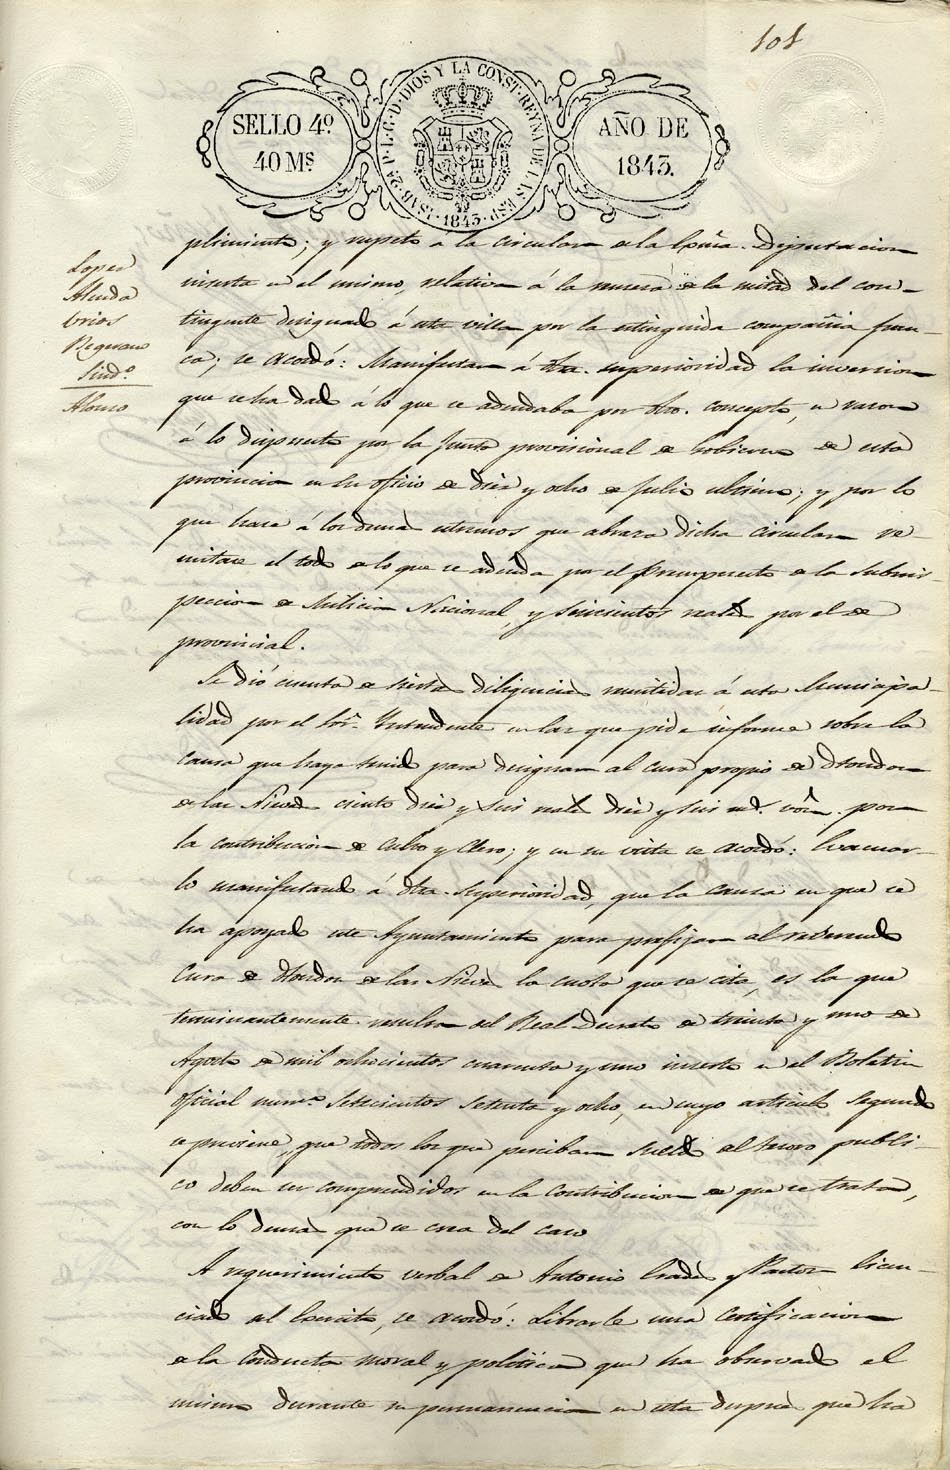 101
SELLO 4º
40 Ms.
ISAB. 2ª P. L. G. D. DIOS Y LA CONST. REYNA DE LAS ESP.
1843
AÑO DE
1843.
Lopez
Alenda
Brios
Sindº
Alonso
plimiento; y respeto a la circular de la Diputacion
inserta en el mismo, relativa á la mitad del con-
tingente designado á esta villa por la estinguida compañia fran-
ca; se acordó: Manifestar á dha. superioridad la inversion
que se ha dado á lo que se adeudaba por dho. concepto, en razon
á lo dispuesto por la Junta provisional de Gobierno de esta
provincia en su oficio de diez y ocho de Julio ultimo; y por lo
que hace á los demas estremos que abraza dicha circular re-
mitase el todo de lo que se adeuda por el presupuesto de la Subins-
peccion de Milicia Nacional, y seiscientos reales por el de
provincial.
Se dió cuenta de ciertas diligencias remitidas á esta Municipa-
lidad por el Sor. Yntendente en las que pide informe sobre la
causa que haya tenido para designar al cura propio de Hondon
de las Nieves ciento diez y seis reales diez y seis ms. von. por
la contribucion de Culto y Clero; y en su vista se acordó: Evacuar-
lo manifestando á dha. Superioridad, que la causa en que se
ha apoyado este Ayuntamiento para prefijar al reverendo
Cura de Hondon de las Nieves la cuota que se cita, es la que
terminantemente resulta del Real Decreto de treinta y uno de
Agosto de mil ochocientos cuarenta y uno inserto en el Boletin
oficial numº setecientos setenta y ocho, en cuyo articulo segundo
se previene, que todos los que perciban sueldo del tesoro publi-
co deben ser comprendidos en la contribucion de que se trata,
con lo demas que se crea del caso
A requerimiento verbal de Antonio Pastor licen-
ciado del Exercito, se acordó: Librarle una Certificacion
de la conducta moral y politica que ha observado el
mismo durante su permanencia en esta despues que ha